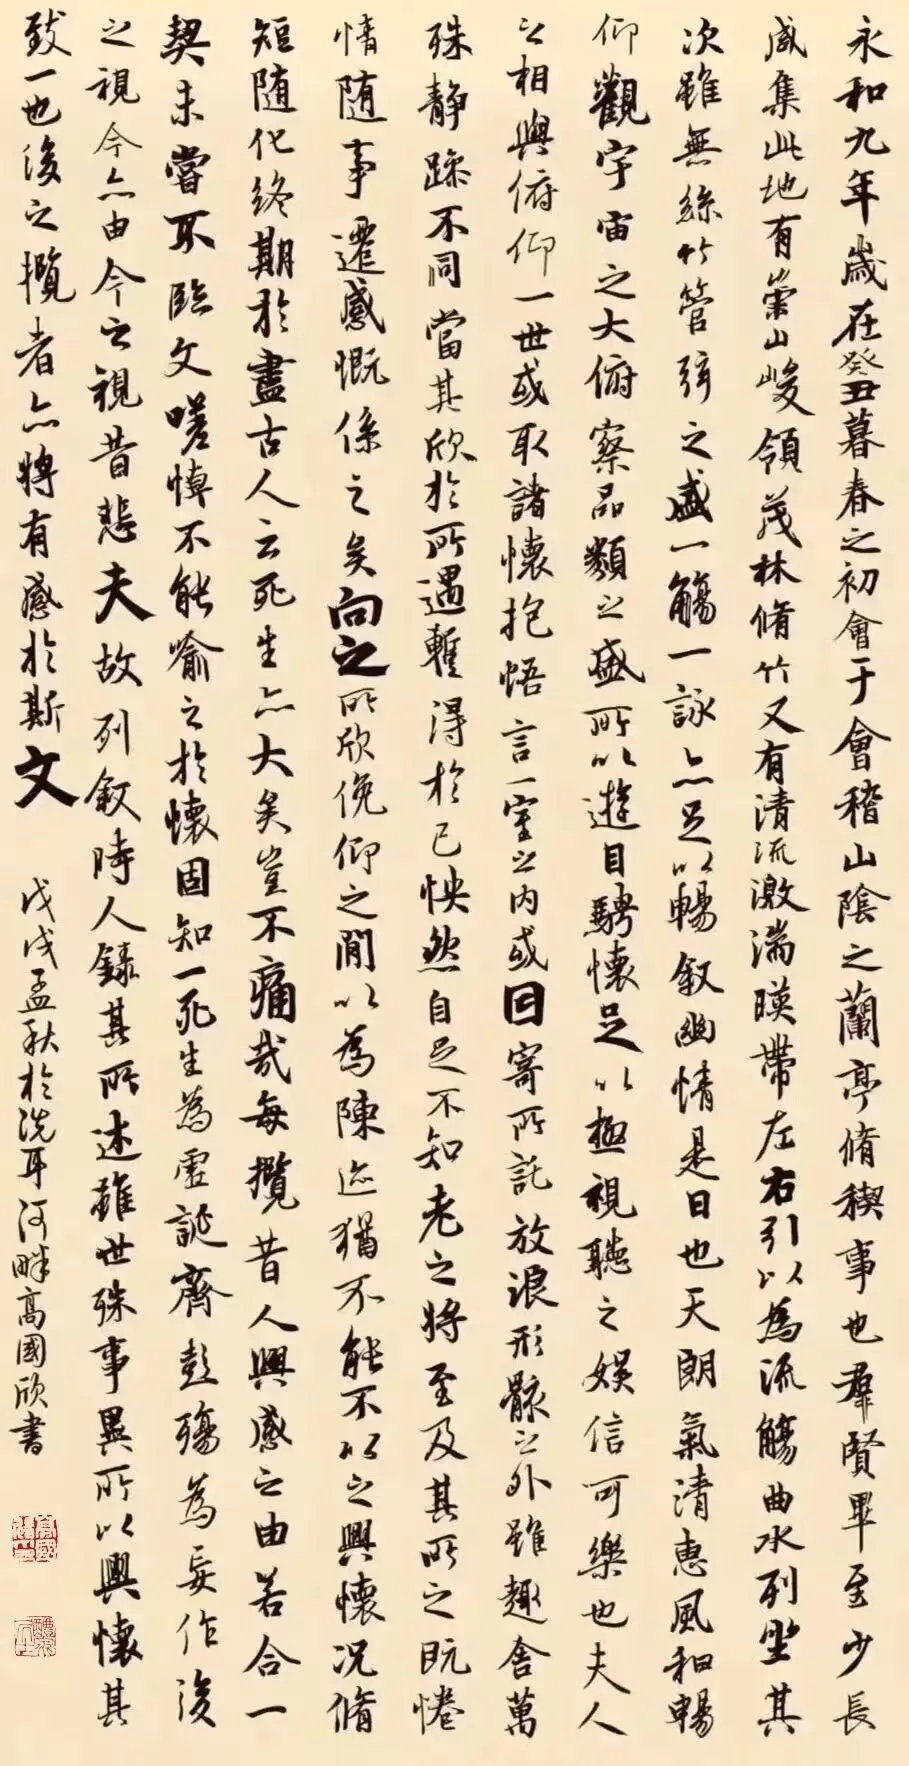 永和九年歲在癸丑暮春之初會于會稽山陰之蘭亭脩稧事也羣賢畢至少長
咸集此地有崇山峻領茂林脩竹又有清流激湍暎帶左右引以為流觴曲水列坐其
次雖無絲竹管弦之盛一觴一詠亦足以暢叙幽情是日也天朗氣清惠風和暢
仰觀宇宙之大俯察品類之盛所以遊目騁懷足以極視聽之娛信可樂也夫人
之相與俯仰一世或取諸懷抱悟言一室之内或因寄所託放浪形骸之外雖趣舍萬
殊静躁不同當其欣於所遇暫得於己怏然自足不知老之將至及其所之既惓
情随事遷感慨係之矣向之所欣俛仰之閒以為陳迹猶不能不以之興懷况脩
短随化終期於盡古人云死生亦大矣豈不痛哉每攬昔人興感之由若合一
契未嘗不臨文嗟悼不能喻之於懷固知一死生為虛誕齊彭殤為妄作後
之視今亦由今之視昔悲夫故列叙時人錄其所述雖世殊事異所以興懷其
致一也後之攬者亦將有感於斯文
戊戌孟秋於洗耳河畔高國欣書